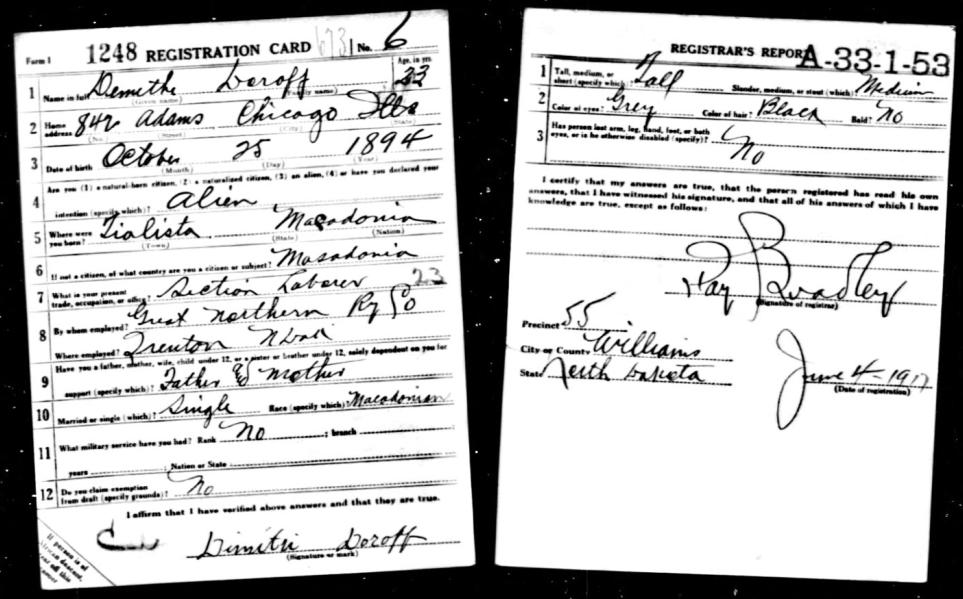 Form 1 1248 REGISTRATION CARD 673 No. 6
1 Name in full Demithe Doroff Age, in yrs. 23
(Given name) (Family name)
2 Home address 842 Adams Chicago Ills
(No.) (Street) (City) (State)
3 Date of birth October 25 1894
(Month) (Day) (Year)
Are you (1) a natural-born citizen, (2) a naturalized citizen, (3) an alien, (4) or have you declared your
4 intention (specify which)? Alien
5 Where were you born? Macadonia
(Town) (State) (Nation)
6 If not a citizen, of what country are you a citizen or subject? Masadonia
7 What is your present trade, occupation, or office? Section Laborer 23
8 By whom employed? Great Northern Ry Co
Where employed? Trenton N Dak
9 Have you a father, mother, wife, child under 12, or a sister or brother under 12, solely dependent on you for
support (specify which)? Father & Mother
10 Married or single (which)? Single Race (specify which)? Macadonian
11 What military service have you had? Rank No ; branch
years ; Nation or State
12 Do you claim exemption from draft (specify grounds)? No
I affirm that I have verified above answers and that they are true.
Dimitri Doroff
(Signature or mark)
If person is of
African descent,
tear off this
corner
REGISTRAR'S REPORT A-33-1-53
1 Tall, medium, or short (specify which)? Tall Slender, medium, or stout (which)? Medium
2 Color of eyes? Grey Color of hair? Black Bald? No
3 Has person lost arm, leg, hand, foot, or both
eyes, or is he otherwise disabled (specify)?
No
I certify that my answers are true, that the person registered has read his own
answers, that I have witnessed his signature, and that all of his answers of which I have
knowledge are true, except as follows:
Ray Bradley
(Signature of registrar)
Precinct 55
City or County Williams
State North Dakota June 4 1917
(Date of registration)